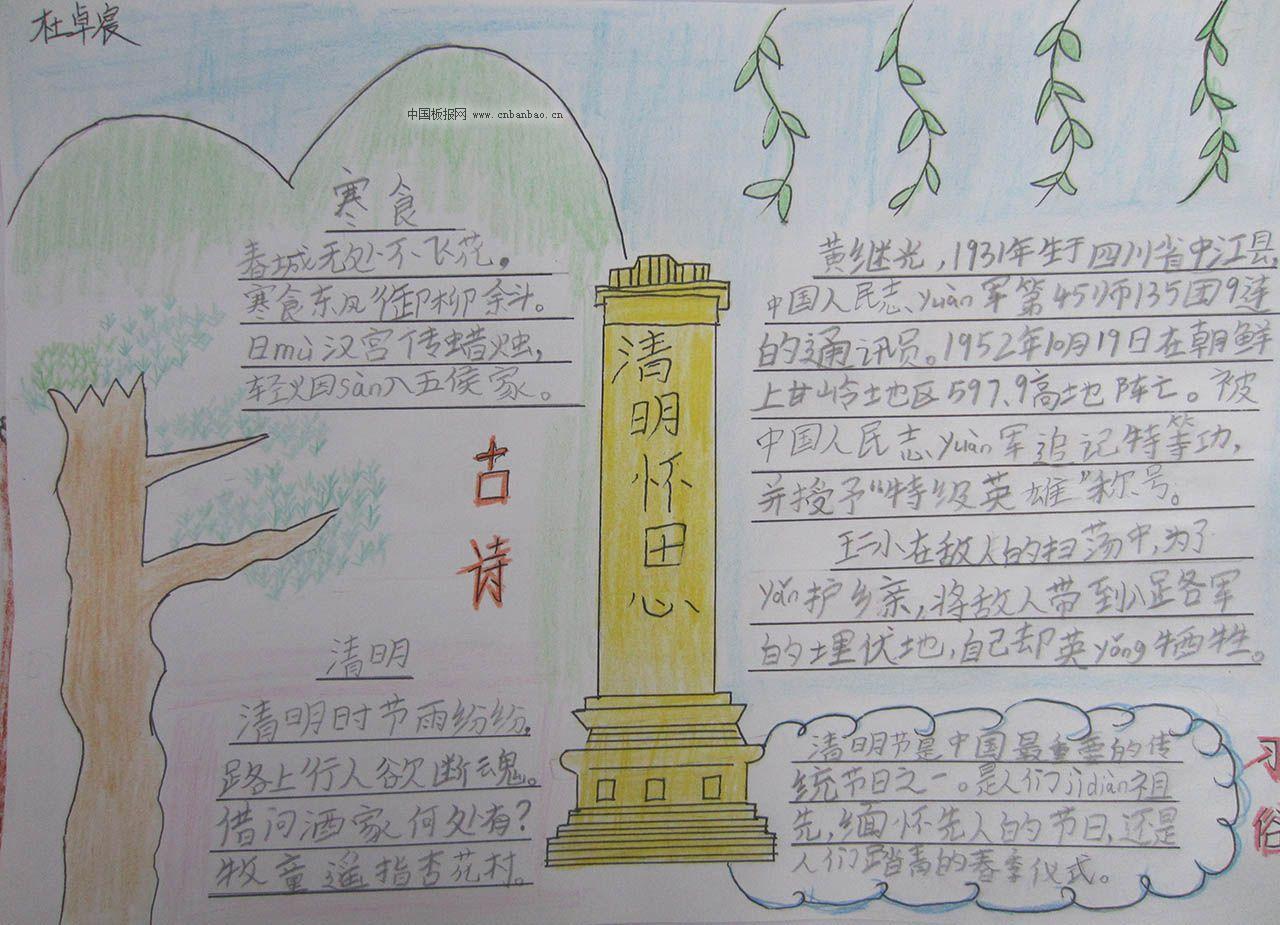 杜卓宸
中国板报网 www.cnbanbao.cn
寒食
春城无处不飞花，
寒食东风御柳余斗。
日mù汉宫传蜡烛，
轻火因sàn入五侯家。
古诗
清明
清明时节雨纷纷，
路上行人欲断魂。
借问酒家何处有？
牧童遥指杏花村。
清明怀思
黄继光，1931年生于四川省中江县，
中国人民志yuàn军第45师135团9连
的通讯员。1952年10月19日在朝鲜
上甘岭地区597.9高地阵亡。被
中国人民志yuàn军追记特等功，
并授予“特级英雄”称号。
王二小在敌人的扫荡中，为了
yǎn护乡亲，将敌人带到八路军
的埋伏地，自己却英yǒng牺牲。
清明节是中国最重要的传
统节日之一。是人们jìdiàn祖
先，缅怀先人的节日，还是
人们踏青的春季仪式。
习俗